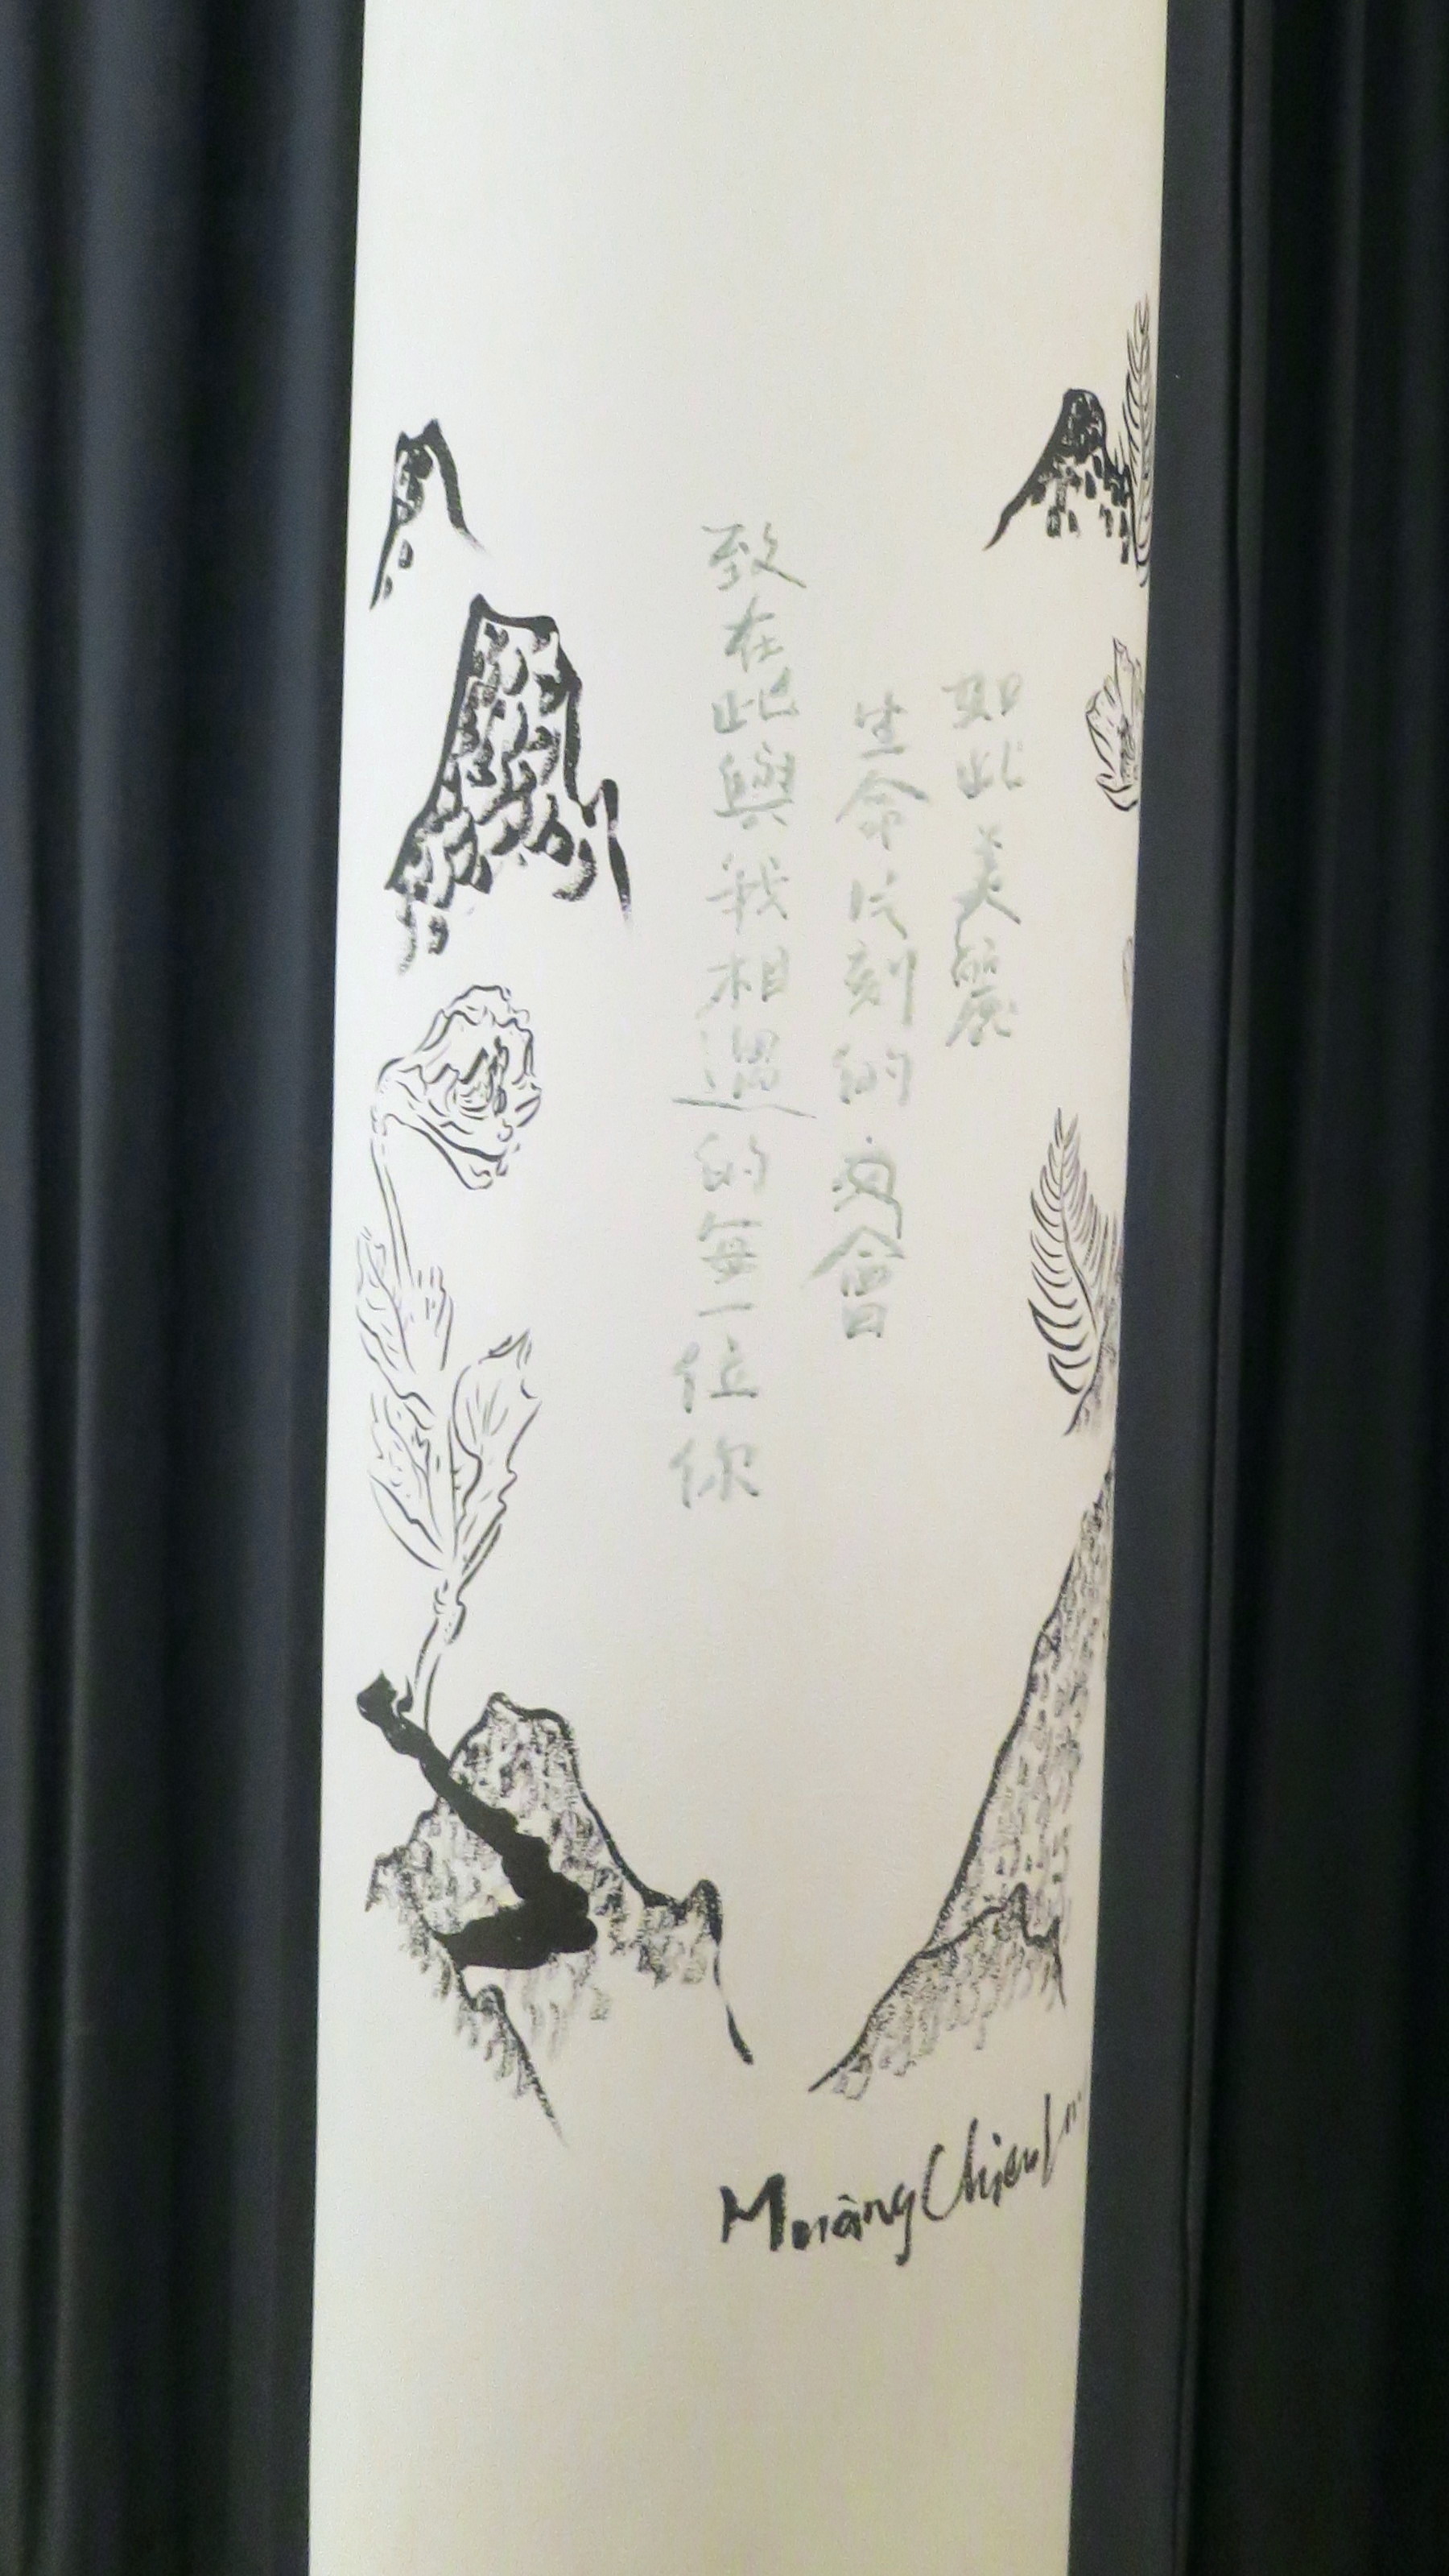 致在此與我相遇的每一位你
生命片刻的交會
如此美麗